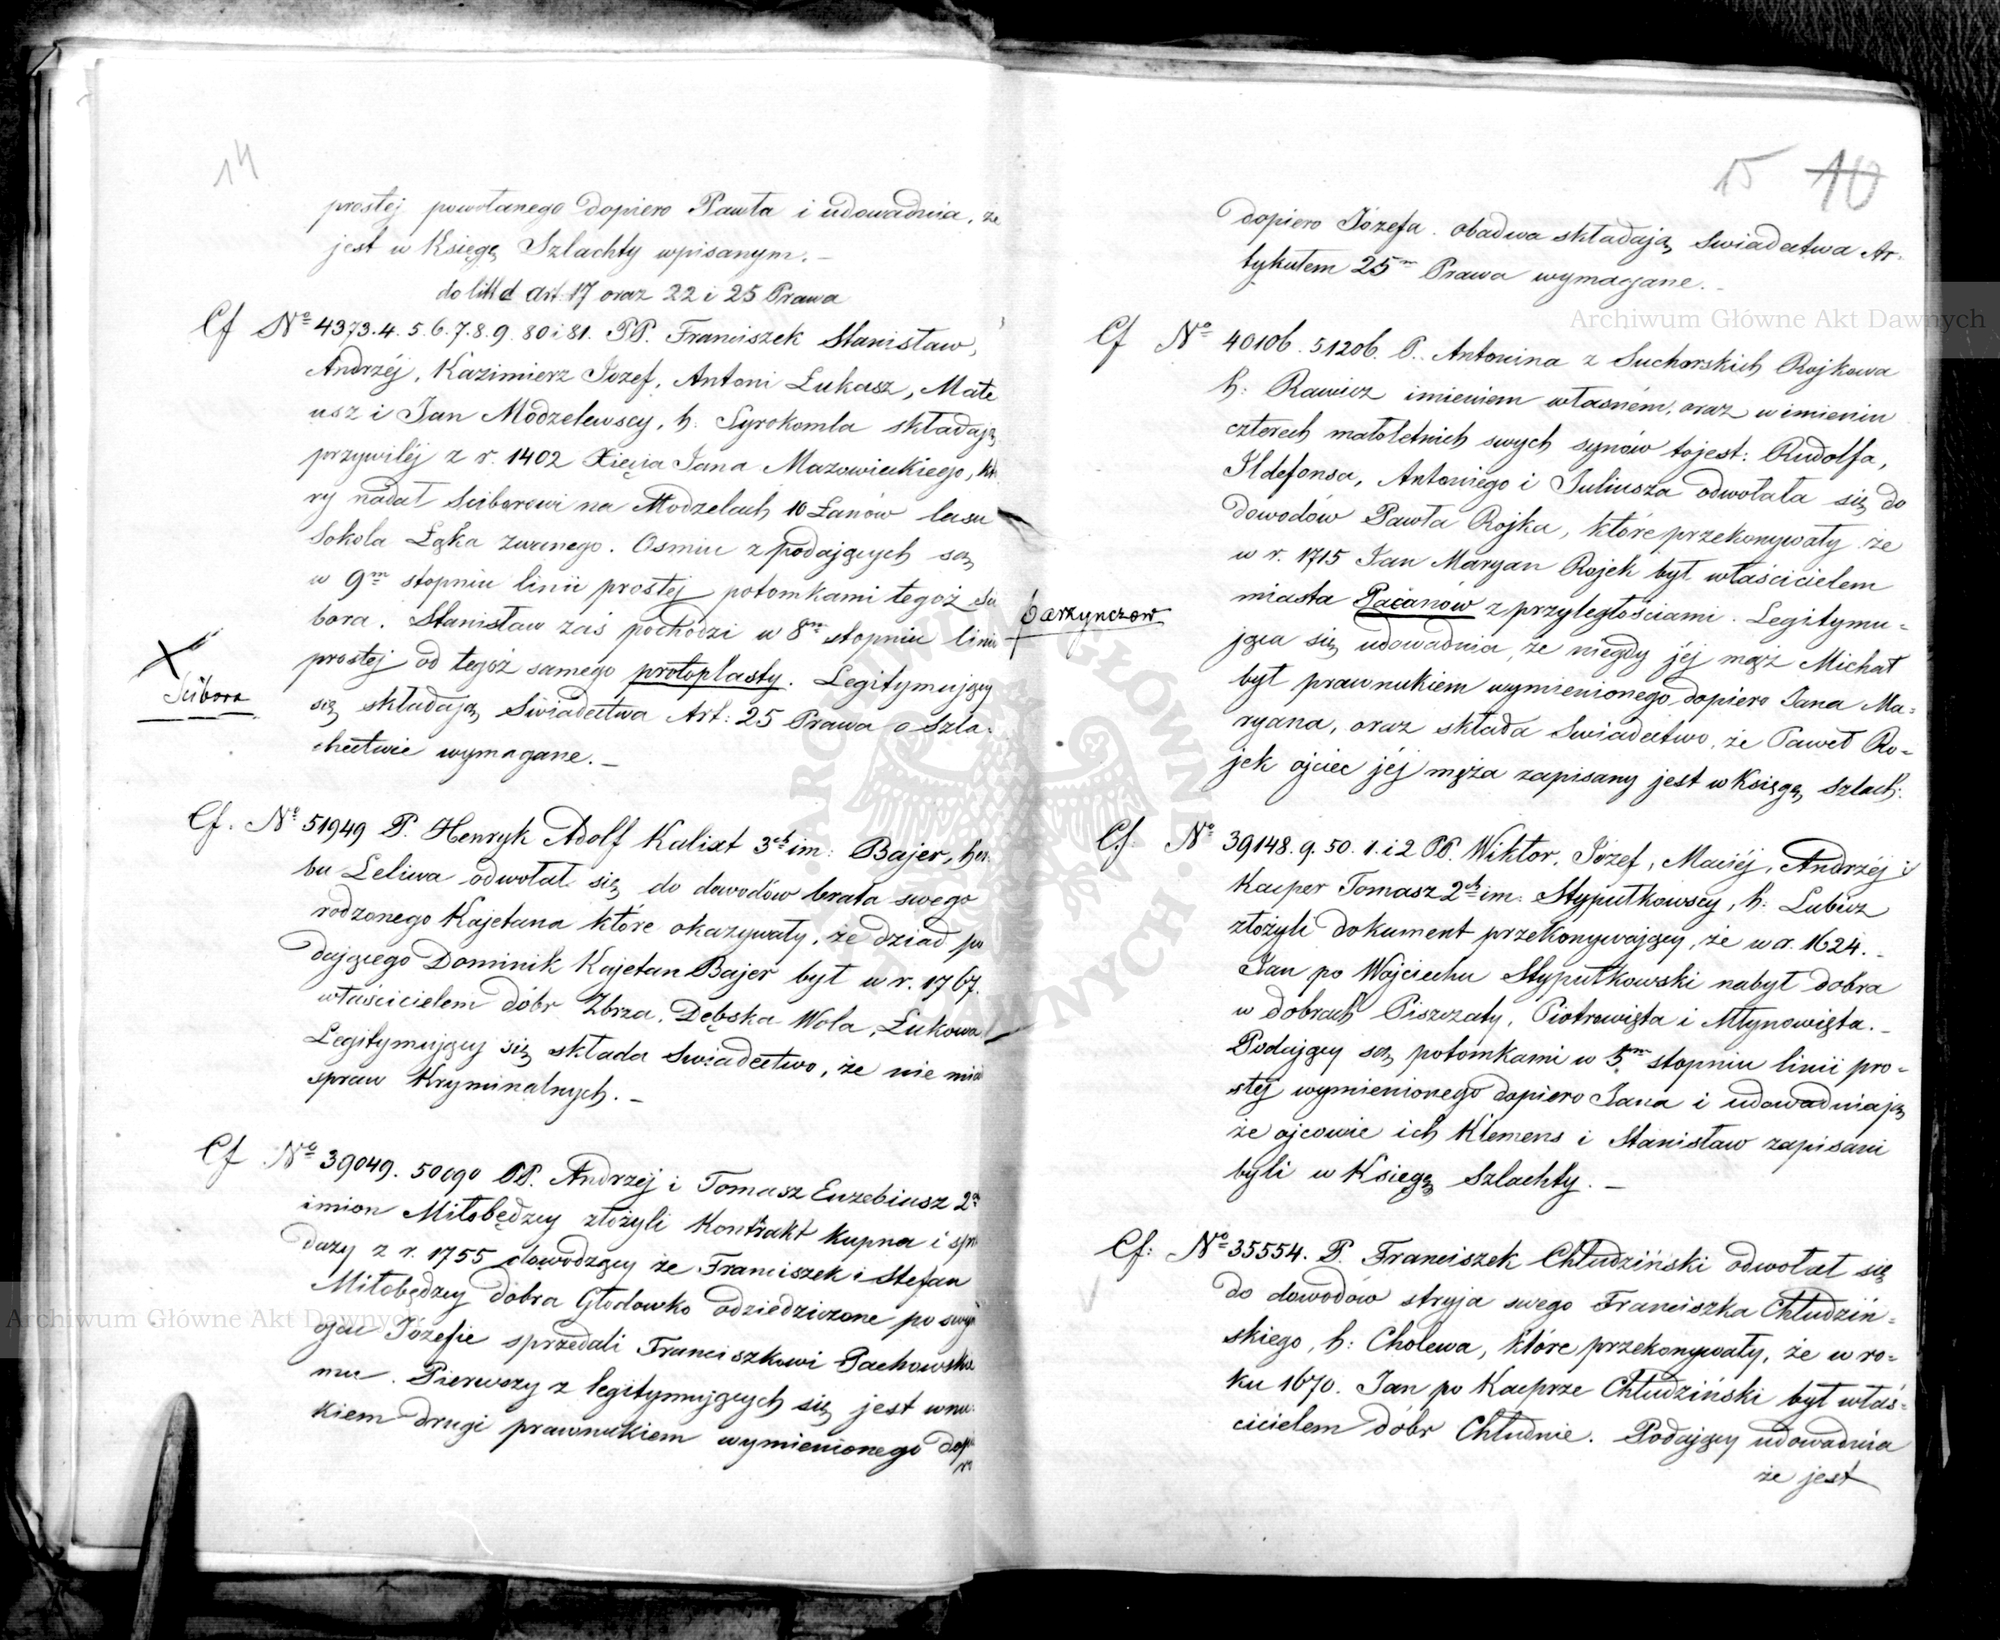 14
prostej powołanego dopiero Pawła i udowadnia, że
jest w Księgę Szlachty wpisanym. –
do litt d Art: 17 oraz 22 i 25 Prawa
Cf Nº 4373.4.5.6.7.8.9.80 i 81. PP. Franciszek Stanisław,
Andrzéj, Kazimierz Jozef, Antoni Łukasz, Mate
usz i Jan Modzelewscy, h: Syrokomla składają
przywiléj z r. 1402 Xięcia Jana Mazowieckiego, któ
ry nadał Sciborowi na Modzelach 10 Łanów lasu
Sokola Łąka zwanego. Osmiu z podających są
w 9m stopniu linii prostej potomkami tegoż Sci
bora. Stanisław zaś pochodzi w 8m stopniu linii
prostej od tegoż samego protoplasty. Legitymujący
Scibora
się składają Swiadectwa Art: 25 Prawa o Szla-
chectwie wymagane. –
Cf. Nº 51949 P. Henryk Adolf Kalixt 3ch im: Bajer, her
bu Leliwa odwołał się do dowodów brata swego
rodzonego Kajetana które okazywały, że dziad po
dającego Dominik Kajetan Bajer był w r. 1767.
właścicielem dóbr Zbrza, Dębska Wola, Łukowa
Legitymujący się składa Swiadectwo, że nie miał
spraw Kryminalnych. –
Cf Nº 39049. 50090 PP. Andrzéj i Tomasz Euzebiusz 2ch
imion Miłobędzcy złożyli Kontrakt kupna i sprze
daży z r. 1755 dowodzący że Franciszek i Stefan
Miłobędzcy dobra Głodowko odziedziczone po swym
ojcu Józefie sprzedali Franciszkowi Pachowskie
mu. Pierwszy z legitymujących się jest wnu-
kiem drugi prawnukiem wymienionego dopie
ro
15 10
dopiero Józefa. obadwa składają Swiadectwa Ar-
tykułem 25m Prawa wymagane. –
Cf Nº 40106. 51206. P. Antonina z Suchorskich Rojkowa
h: Rawicz imieniem własném, oraz w imieniu
czterech małoletnich swych synów tojest: Rudolfa,
Ildefonsa, Antoniego i Juliusza odwołała się do
dowodów Pawła Rojka, które przekonywały że
w r. 1715 Jan Maryan Rojek był właścicielem
miasta Pacanów z przyległościami. Legitymu-
jąca się udowadnia, że niegdy jéj mąż Michał
był prawnukiem wymienionego dopiero Jana Ma-
ryana, oraz składa Swiadectwo, że Paweł Ro-
jek ojciec jéj męża zapisany jest w Księgę Szlach:
Cf: Nº 39148.9.50.1. i 2 PP. Wiktor, Józef, Maciéj, Andrzéj i
Kacper Tomasz 2ch im: Stypułkowscy, h: Lubicz
złożyli dokument przekonywający, że w r. 1624. –
Jan po Wojciechu Stypułkowski nabył dobra
w dobrach Piszczaty, Piotrowięta i Młynowięta. –
Podający są potomkami w 5m stopniu linii pro-
stéj wymienionego dopiero Jana i udowadniają
że ojcowie ich Klemens i Stanisław zapisani
byli w Księgę Szlachty. –
Cf: Nº 35554. P. Franciszek Chłudziński odwołał się
do dowodów stryja swego Franciszka Chłudziń-
skiego, h: Cholewa, które przekonywały, że w ro-
ku 1670. Jan po Kacprze Chłudziński był właś-
cicielem dóbr Chłudnie. Podający udowadnia
że jest
Archiwum Główne Akt Dawnych
Archiwum Główne Akt Dawnych
ARCHIWUM GŁÓWNE AKT DAWNYCH